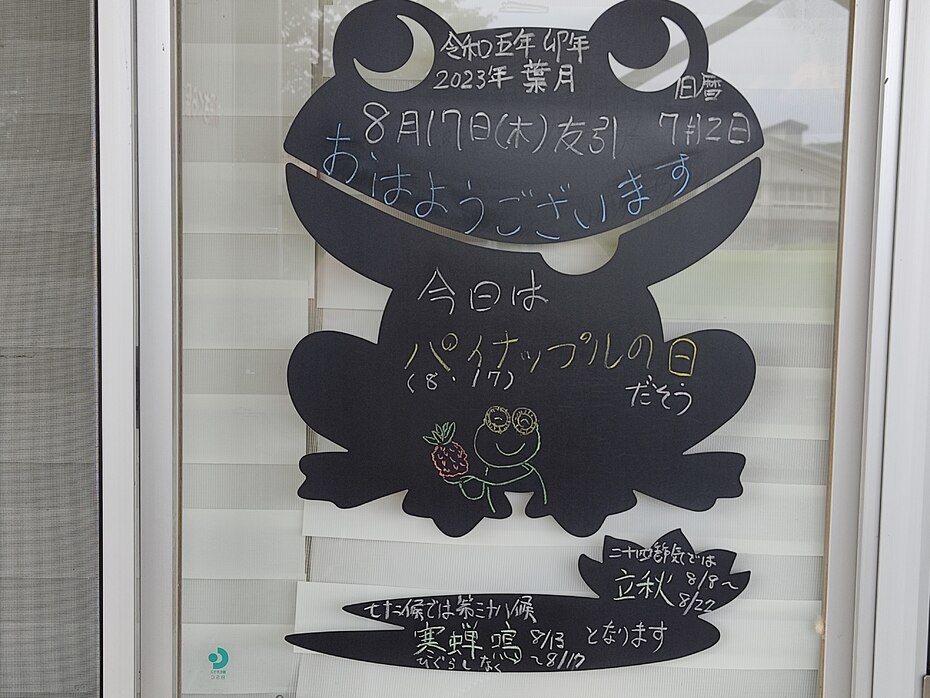 令和五年卯年
2023年 葉月
旧暦
8月17日(木)友引 7月2日
おはようございます
今日は
パイナップルの日
(8.17)
だそう
二十四節気では
立秋 8/8～
8/22
七十二候では第三十八候
寒蝉鳴 8/13 となります
ひぐらしなく ～8/17